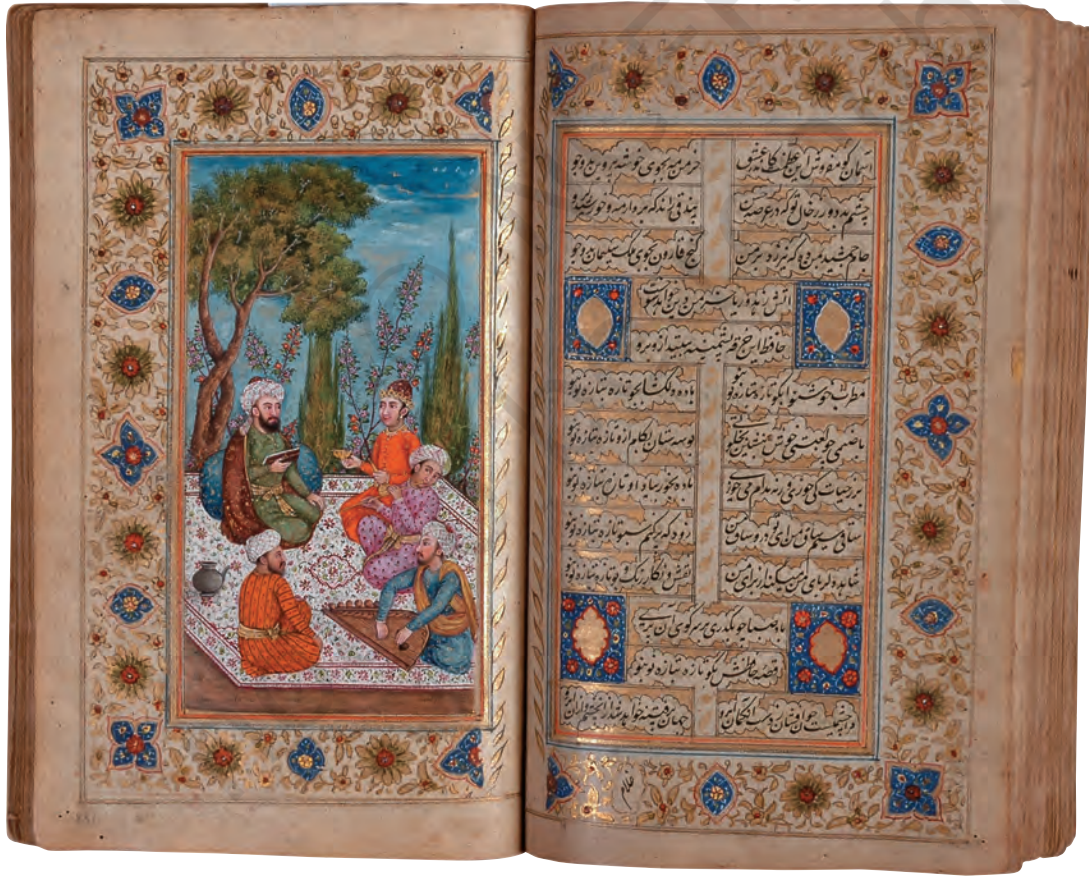 آسمان گو مفروش این عظمت کاندر عشق خرمن مه بجوی خوشه پروین بدو جو
چشم بد دور ز خال تو که در عرصه حسن بیدقی راند که برد از مه و خورشید گرو
جام جمشید بمن ده که نیرزد بر من گنج قارون بجوی ملک سلیمان بدو جو
آتش زهد و ریا خرمن دین خواهد سوخت
حافظ این خرقه پشمینه بینداز و برو
مطرب خوش نوا بگو تازه بتازه نو بنو باده دلگشا بجو تازه بتازه نو بنو
با صنمی چو لعبتی خوش بنشین بخلوتی بوسه ستان بکام ازو تازه بتازه نو بنو
بر ز حیات کی خوری گر نه مدام می خوری باده بخور بیاد او تازه بتازه نو بنو
ساقی سیم ساق من زود که پر کنم سبو تازه بتازه نو بنو
شاهد دلربای من میکند از برای من نقش و نگار و رنگ و بو تازه بتازه نو بنو
باد صبا چو بگذری بر سر کوی آن پری
قصه حافظش بگو تازه بتازه نو بنو
غلام